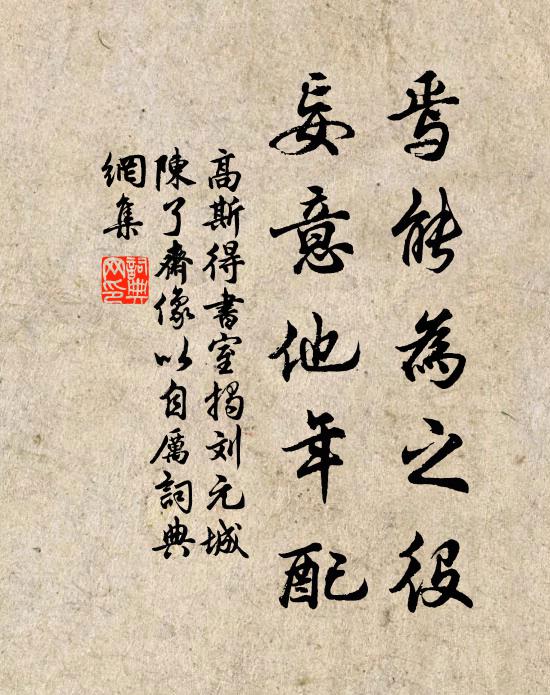 焉能為之役
妄意他年配
高斯得書室揭刘元城
陳了齋像以自厲詞典
網集
詞典
网印